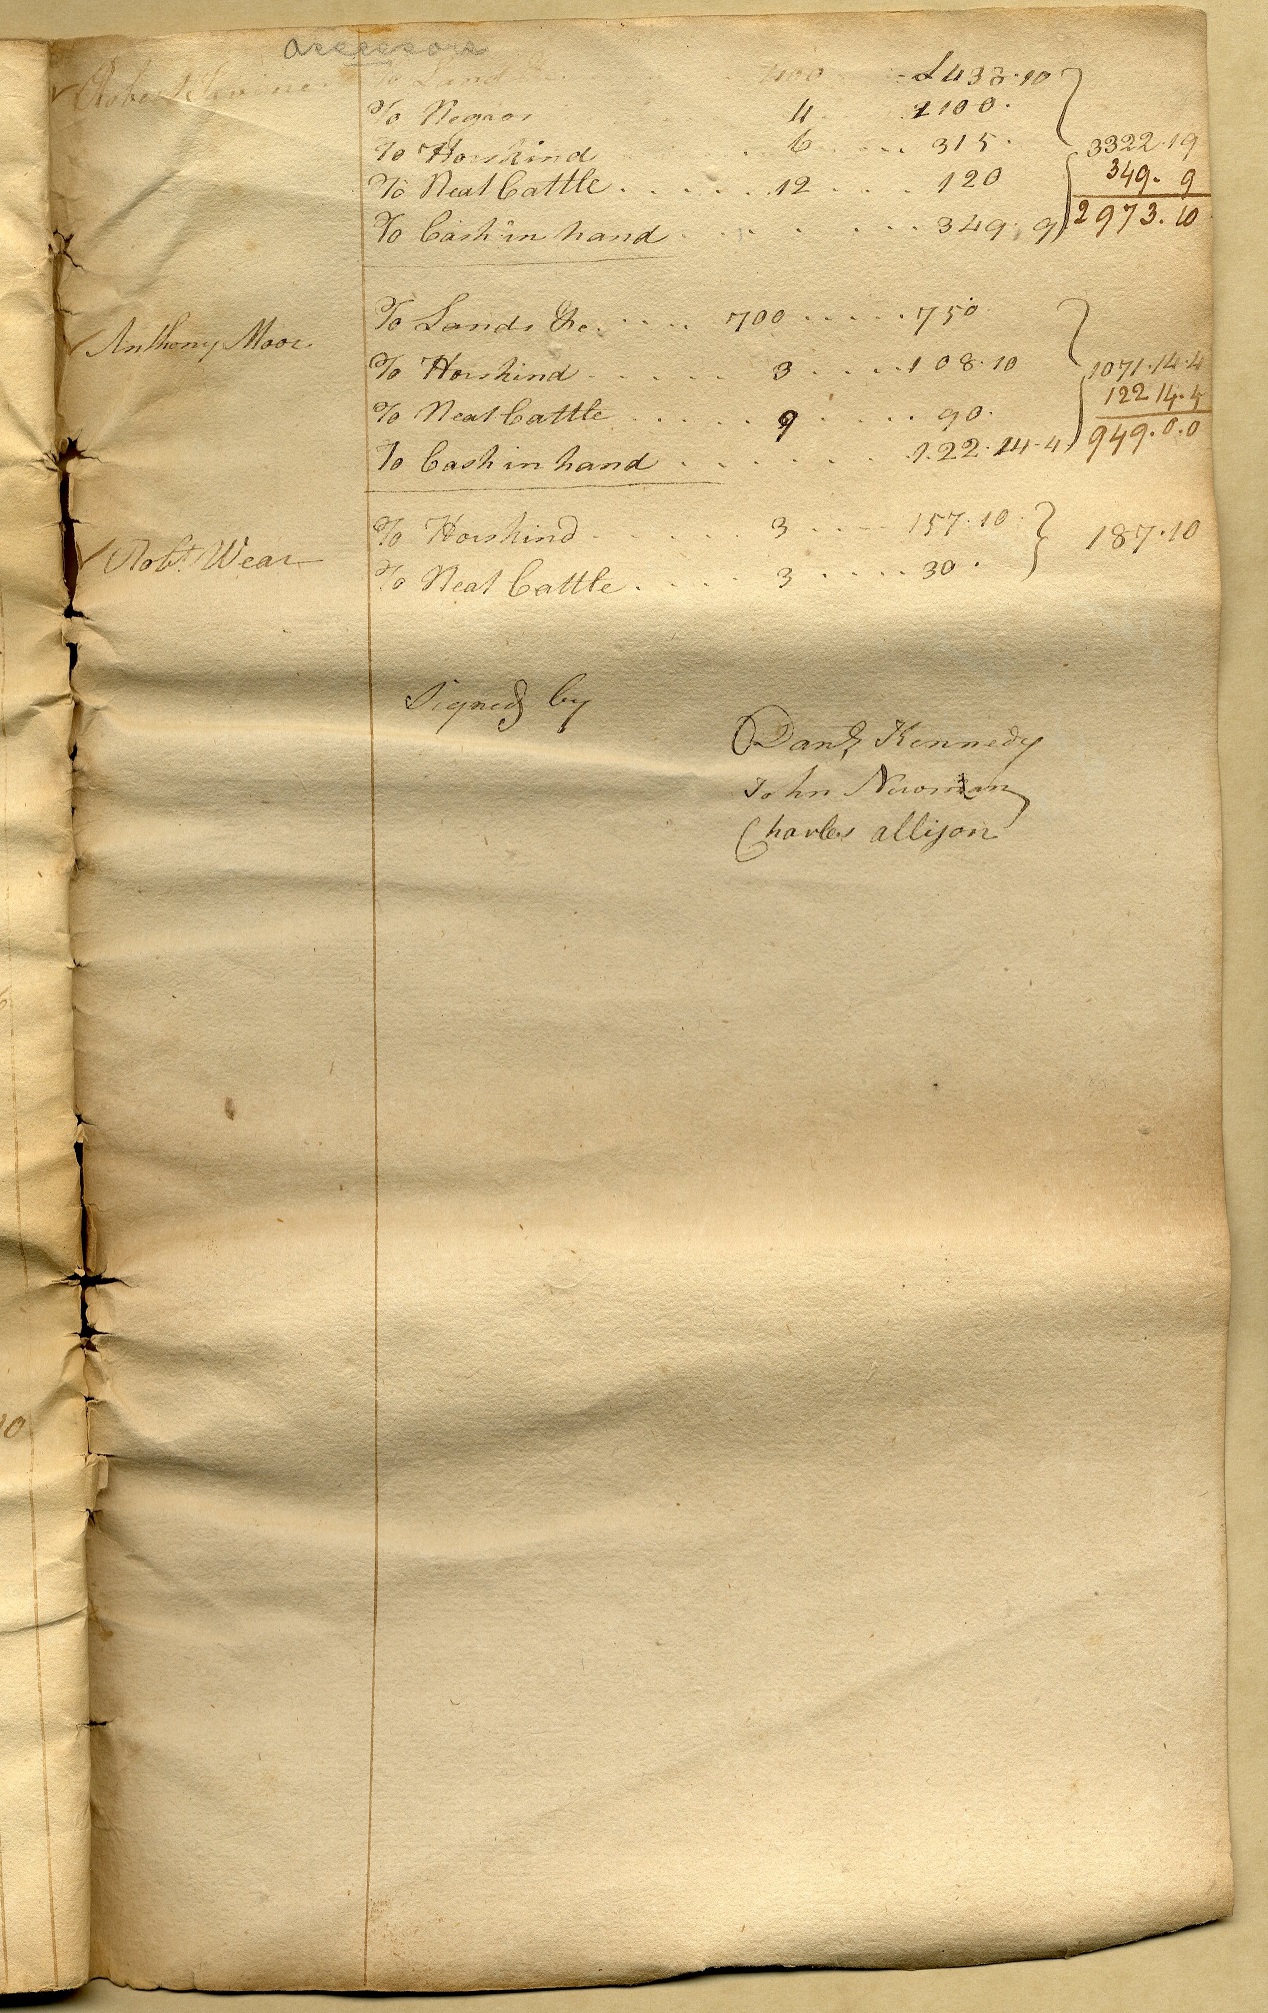 assessors
Robert To Land &c. 400 £438.10
To Negros 4 1100.
To Horskind 6 315. 3322.19
To Neat Cattle 12 120 349. 9
To Cash in hand 349. 9 2973.10
Anthony Moor To Lands &c. 700 750
To Horskind 3 108.10 1071.14.4
To Neat Cattle 9 90. 122 14.4
To Cash in hand 122.14.4 949.0.0
Robt. Wear To Horskind 3 157.10 187.10
To Neat Cattle 3 30.
Signed by
Danl. Kennedy
John Newman
Charles allison
10